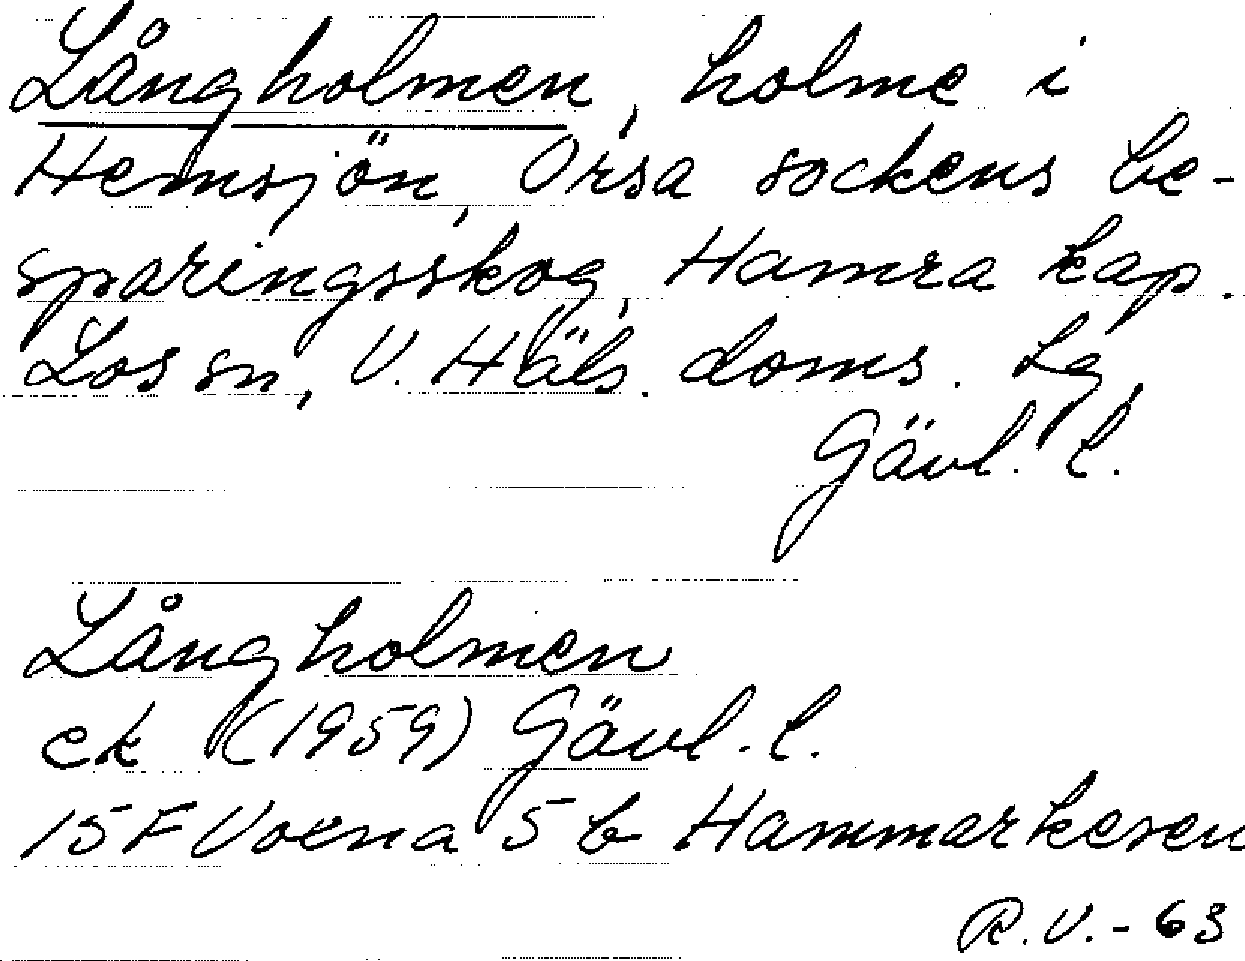 Långholmen, holme i
Hemsjön, Orsa sockens be-
sparingsskog, Hamra kap.
Los sn, V. Häls. doms. Lg,
Gävl. l.
Långholmen
ek (1959) Gävl. l.
15F Voxna 5 b Hammarkesen
R.V.-63